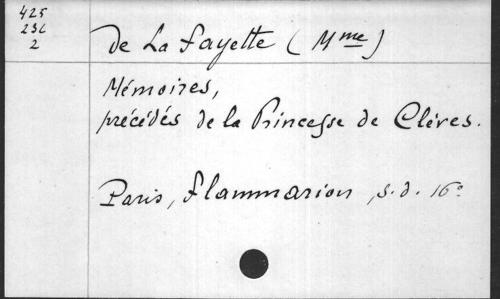 425
236
2
de La Fayette (Mme)
Mémoires,
précédés de la Princesse de Clèves.
Paris, Flammarion, s.d. 16°